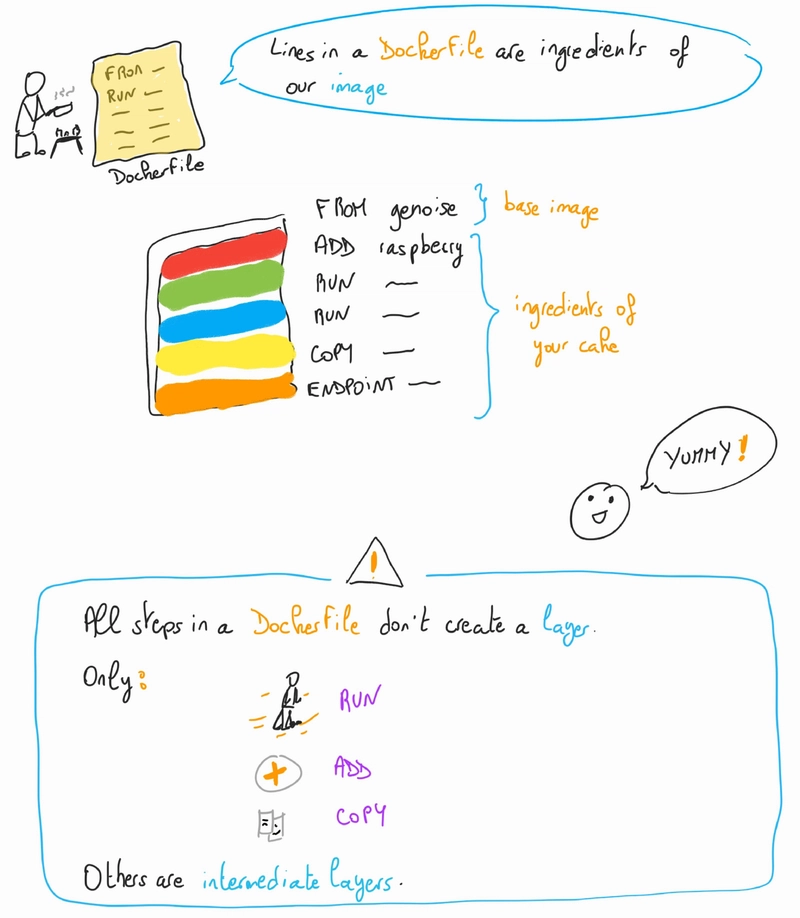 Lines in a Dockerfile are ingredients of
our image
FROM —
RUN —
Dockerfile
FROM genoise
base image
ADD raspberry
RUN —
RUN —
COPY —
ENDPOINT —
ingredients of
your cake
YUMMY!
!
All steps in a Dockerfile don't create a layer.
Only:
RUN
ADD
COPY
Others are intermediate layers.